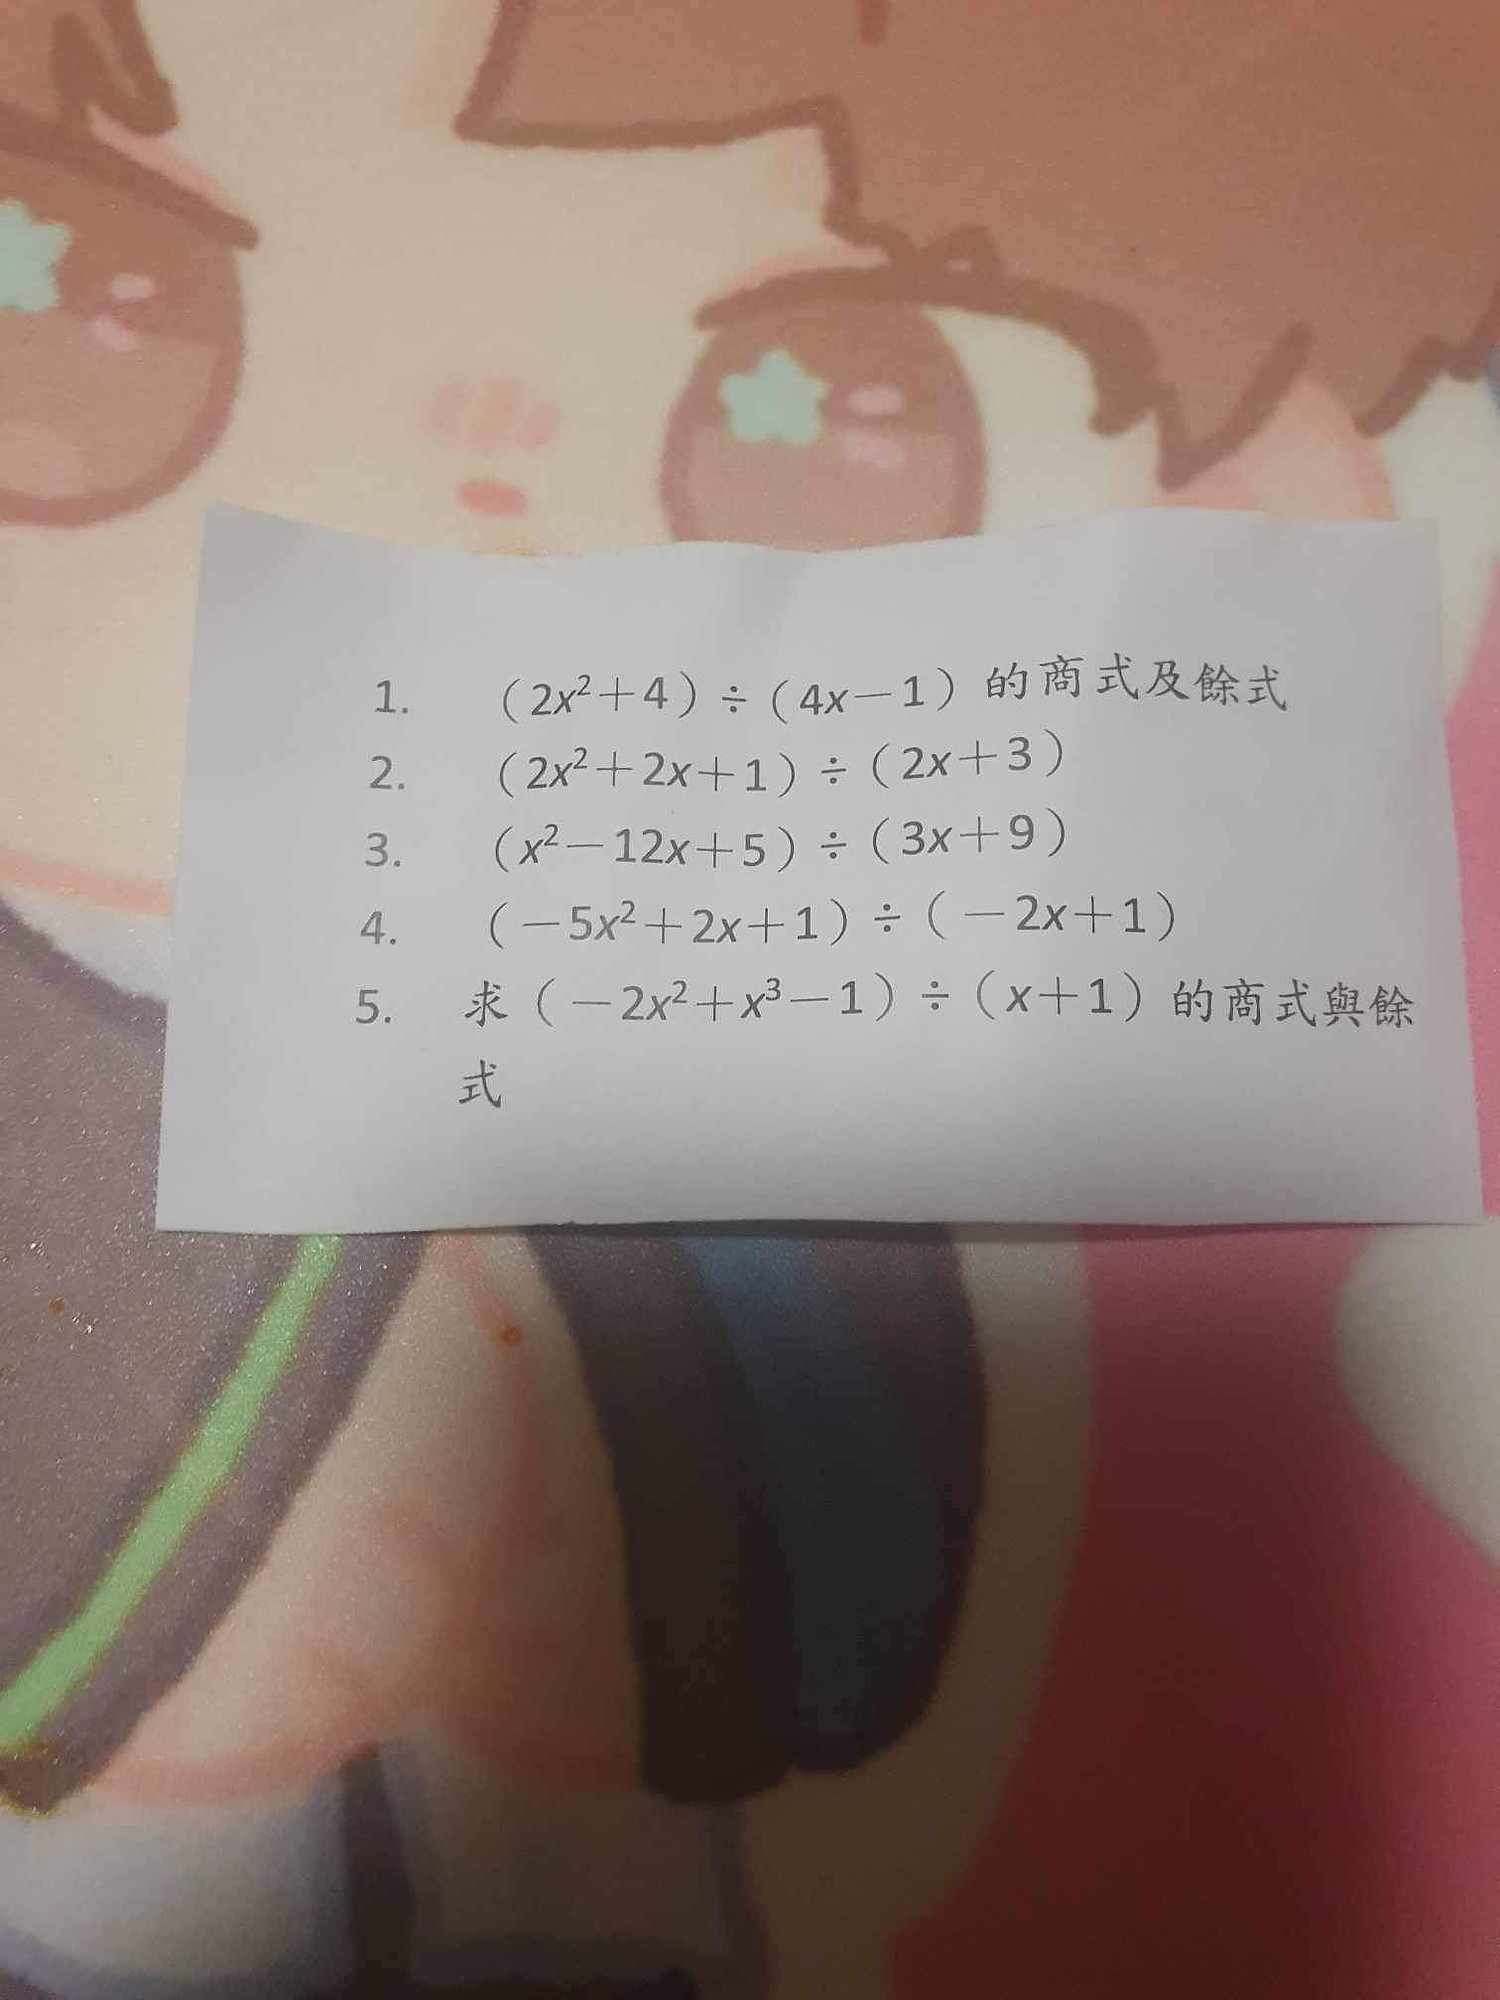 1. （2x²＋4）÷（4x－1）的商式及餘式
2. （2x²＋2x＋1）÷（2x＋3）
3. （x²－12x＋5）÷（3x＋9）
4. （－5x²＋2x＋1）÷（－2x＋1）
5. 求（－2x²＋x³－1）÷（x＋1）的商式與餘
式